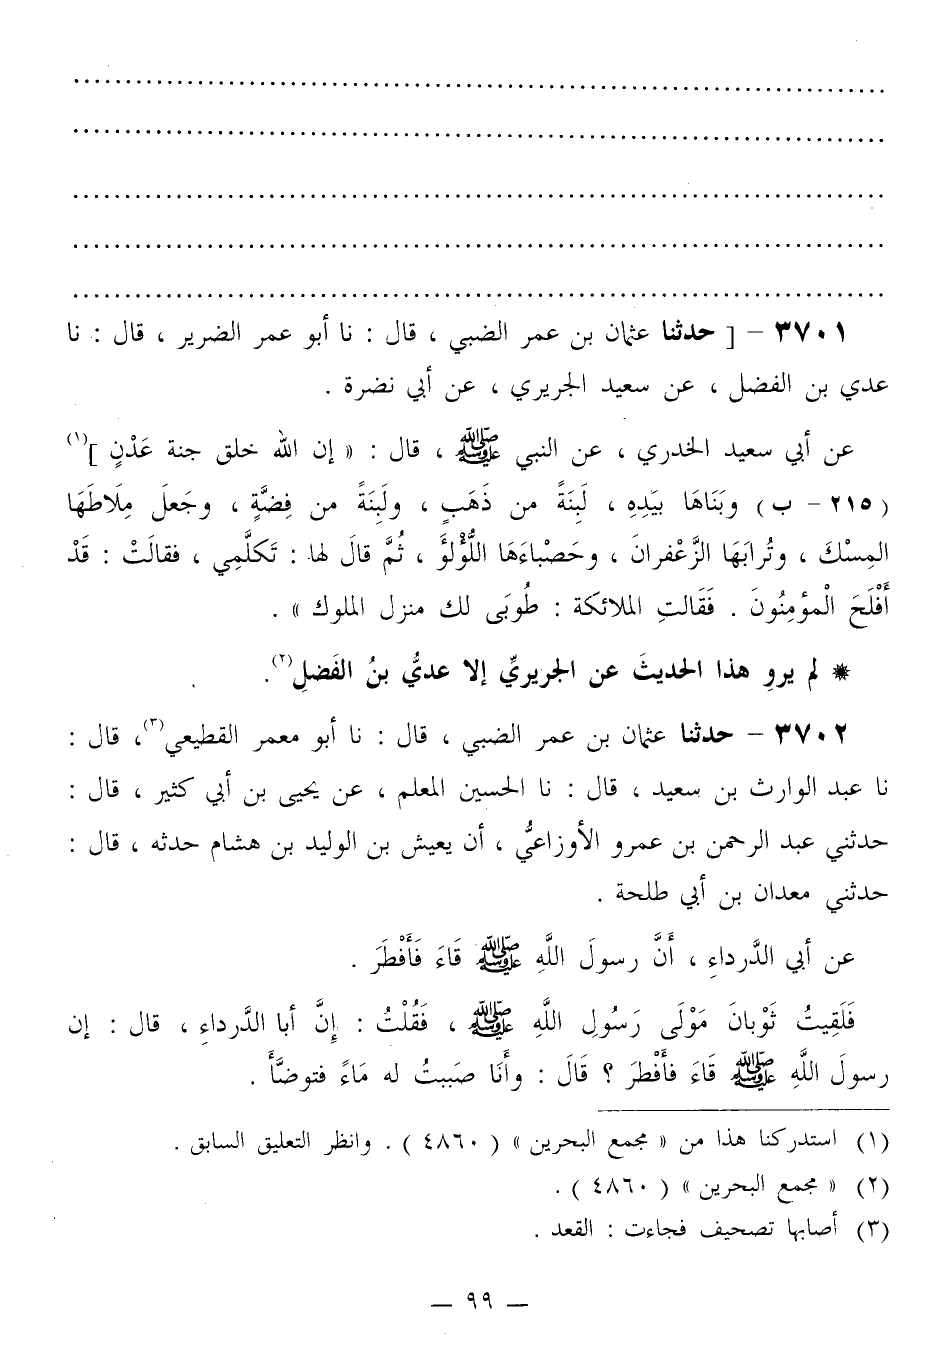 ................................................................................
................................................................................
................................................................................
................................................................................
................................................................................
٣٧٠١ - [ حدثنا عثمان بن عمر الضبي ، قال : نا أبو عمر الضرير ، قال : نا
عدي بن الفضل ، عن سعيد الجريري ، عن أبي نضرة .
عن أبي سعيد الخدري ، عن النبي ﷺ ، قال : « إن الله خلق جنة عَدْنٍ ](١)
( ٢١٥ - ب ) وبَنَاهَا بيَدِهِ ، لَبِنَةً من ذَهَبٍ ، ولَبِنَةً من فِضَّةٍ ، وجَعلَ مِلَاطَهَا
المِسْكَ ، وتُرابَهَا الزَّعْفرانَ ، وحَصْباءَهَا اللُّؤْلؤَ ، ثُمَّ قالَ لها : تَكلَّمِي ، فقالَتْ : قَدْ
أَفْلَحَ الْمؤمِنُونَ . فَقَالتِ الملائكة : طُوبَى لك منزل الملوك » .
* لم يروِ هذا الحديثَ عن الجريريِّ إلا عديُّ بنُ الفَضلِ(٢).
٣٧٠٢ - حدثنا عثمان بن عمر الضبي ، قال : نا أبو معمر القطيعي(٣)، قال :
نا عبد الوارث بن سعيد ، قال : نا الحسين المعلم ، عن يحيى بن أبي كثير ، قال :
حدثني عبد الرحمن بن عمرو الأوزاعيُّ ، أن يعيش بن الوليد بن هشام حدثه ، قال :
حدثني معدان بن أبي طلحة .
عن أبي الدَّرداءِ ، أَنَّ رسولَ اللَّهِ ﷺ قَاءَ فَأَفْطَرَ .
فَلَقِيتُ ثَوْبانَ مَوْلَى رَسُولِ اللَّهِ ﷺ ، فَقُلْتُ : إِنَّ أبا الدَّرداءِ ، قال : إن
رسولَ اللَّهِ ﷺ قَاءَ فأَفْطرَ ؟ قَالَ : وأَنَا صَببتُ له مَاءً فتوضَّأَ .
(١) استدركنا هذا من « مجمع البحرين » ( ٤٨٦٠ ) . وانظر التعليق السابق .
(٢) « مجمع البحرين » ( ٤٨٦٠ ) .
(٣) أصابها تصحيف فجاءت : القعد .
— ٩٩ —